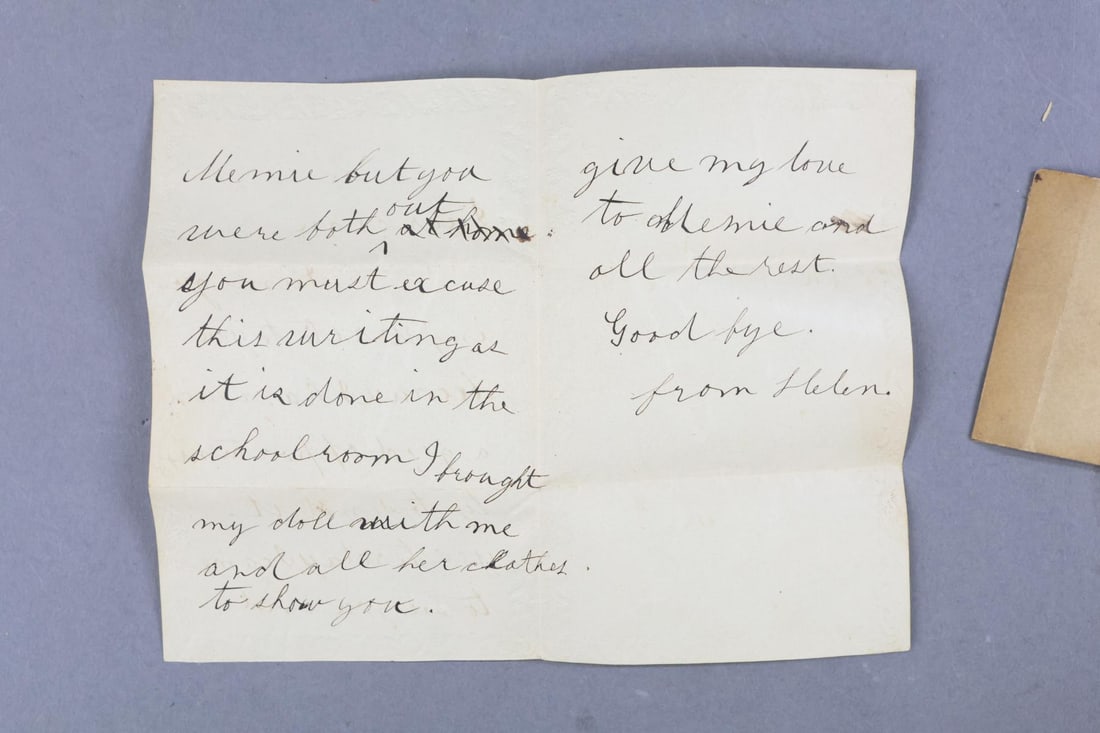 Memie but you
out
were both at home.
you must excuse
this writing as
it is done in the
schoolroom I brought
my doll with me
and all her clothes.
to show you.
give my love
to Memie and
all the rest.
Good bye.
from Helen.